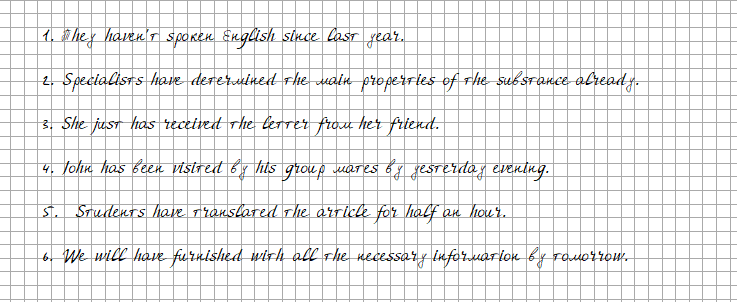 1. They haven't spoken English since last year.
2. Specialists have determined the main properties of the substance already.
3. She just has received the letter from her friend.
4. John has been visited by his group mates by yesterday evening.
5. Students have translated the article for half an hour.
6. We will have furnished with all the necessary information by tomorrow.